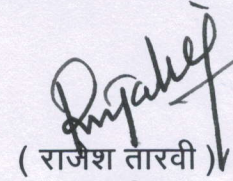 ( राजेश तारवी )